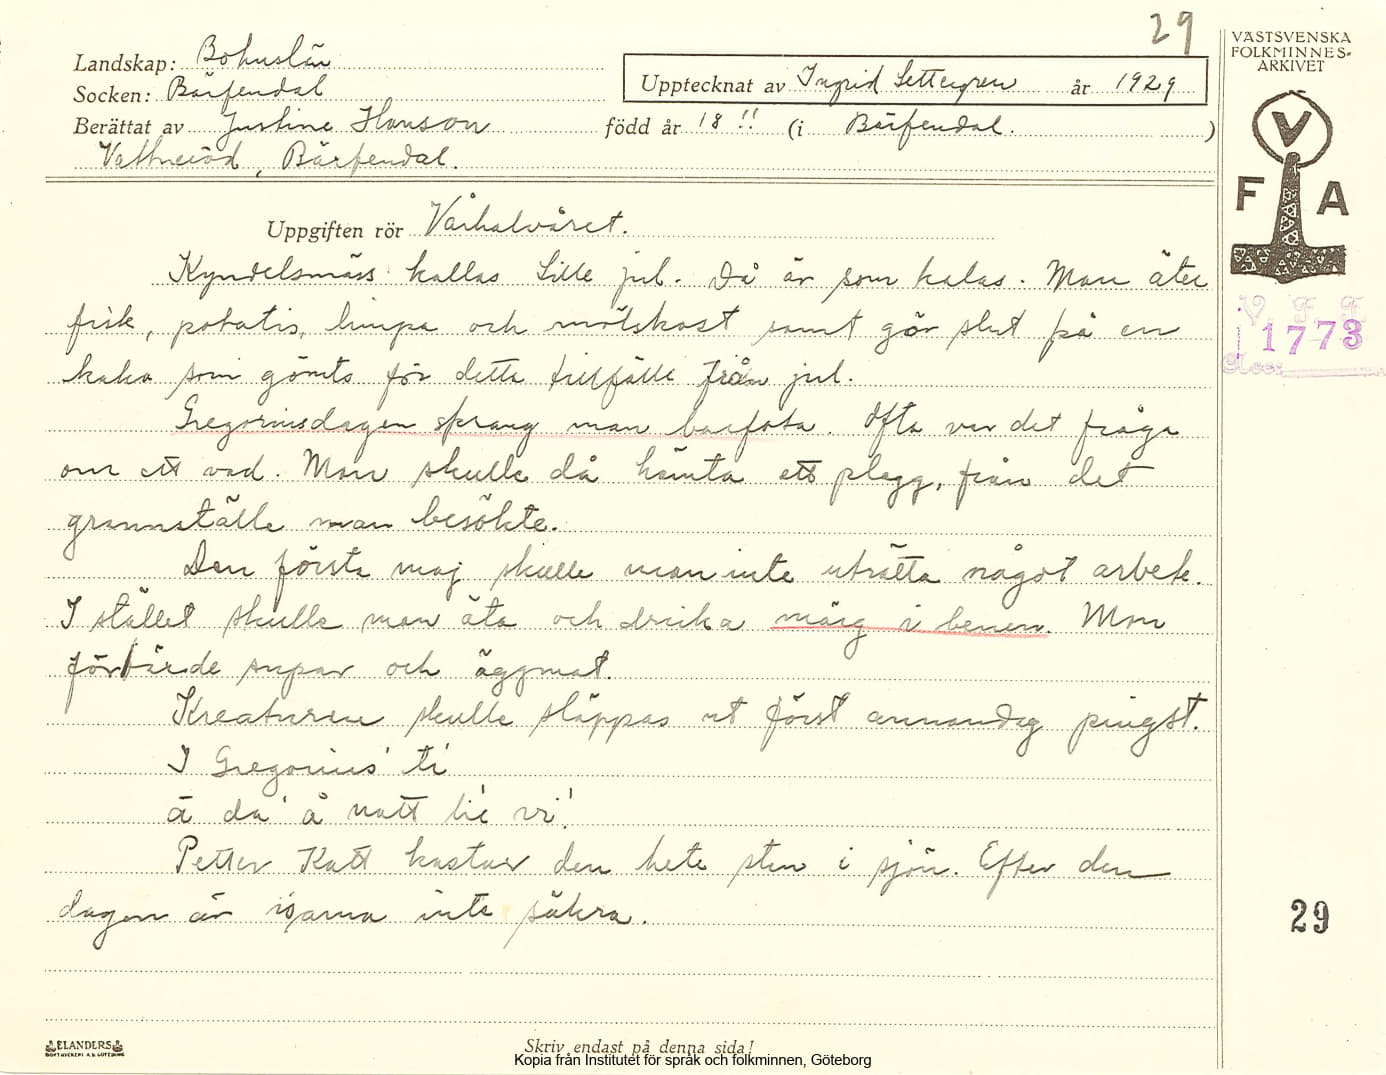 29
VÄSTSVENSKA
FOLKMINNES-
ARKIVET
Landskap: Bohuslän
Socken: Bärfendal
Upptecknat av Ingrid Settergren år 1929
Berättat av Justine Hanson född år 18 !! (i Bärfendal.)
Vattneröd, Bärfendal.
V
F A
V. F. F.
1773
Uppgiften rör Vårhalvåret.
Kyndelsmäss kallas Lille jul. Då är som kalas. Man äter
fisk, potatis, limpa och mölskost samt gör slut på en
kaka som gömts för detta tillfälle från jul.
Gregoriusdagen sprang man barfota. Ofta var det fråga
om ett vad. Man skulle då hämta ett plagg, från det
grannställe man besökte.
Den första maj skulle man inte uträtta något arbete.
I stället skulle man äta och dricka märg i benen. Man
förtärde supar och äggmat.
Kreaturen skulle släppas ut först annandag pingst.
I Gregorius' ti'
ä da' å natt li'e vi'!
Petter Katt kastar den hete sten i sjön. Efter den
dagen är isarna inte säkra.
29
ELANDERS
BOKTRYCKERI A.B. GÖTEBORG
Skriv endast på denna sida!
Kopia från Institutet för språk och folkminnen, Göteborg